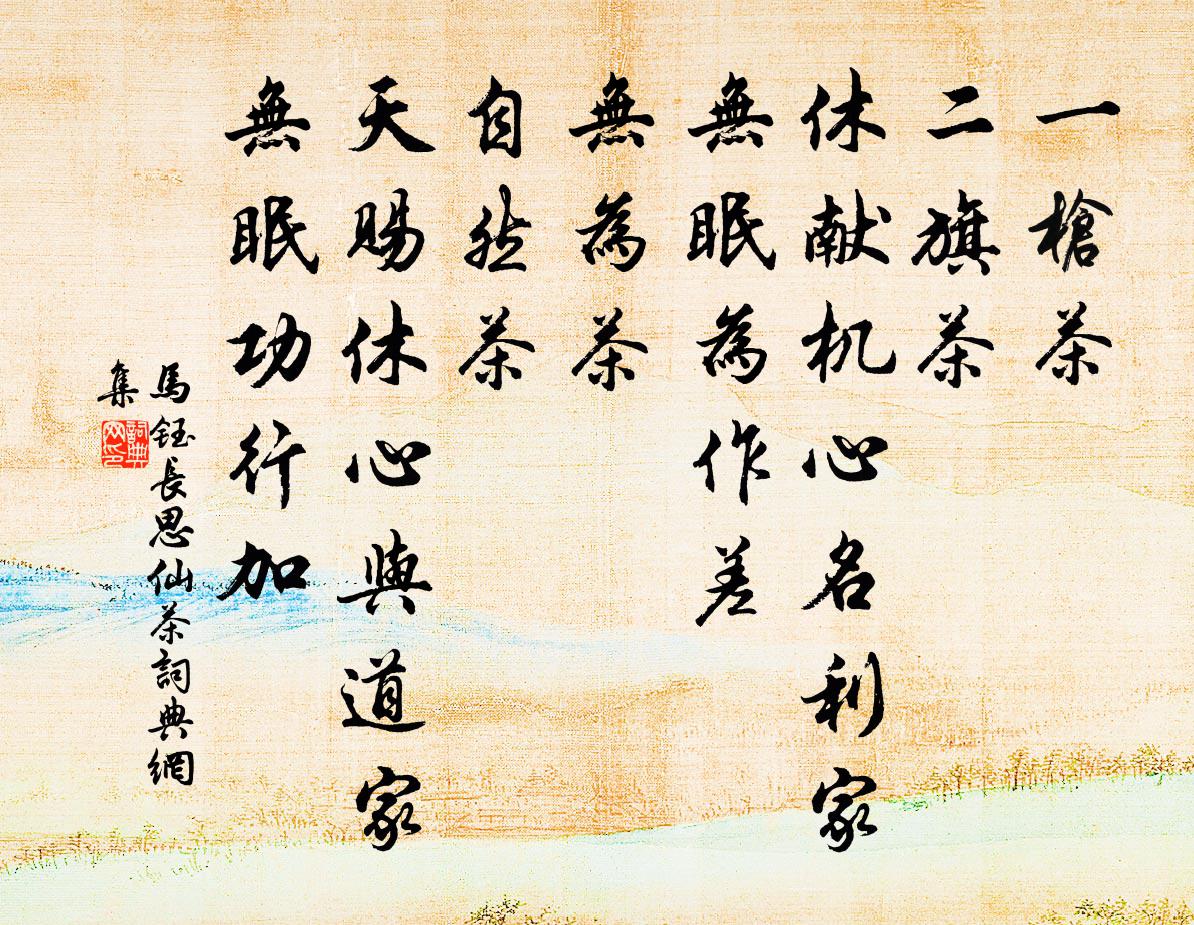 一槍茶
二旗茶
休献机心名利家
無眠為作差
無為茶
自然茶
天賜休心與道家
無眠功行加
馬鈺長思仙茶詞典網
集
詞典
网印